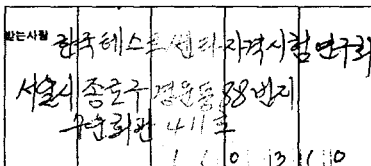 받는사람 한국테스트센터 자격시험연구회
서울시 종로구 경운동 88번지
411호
110 310